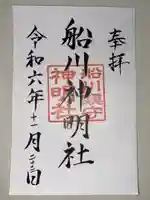 奉拝
船川神明社
船川鎮守
神明社
令和六年十一月二十三日